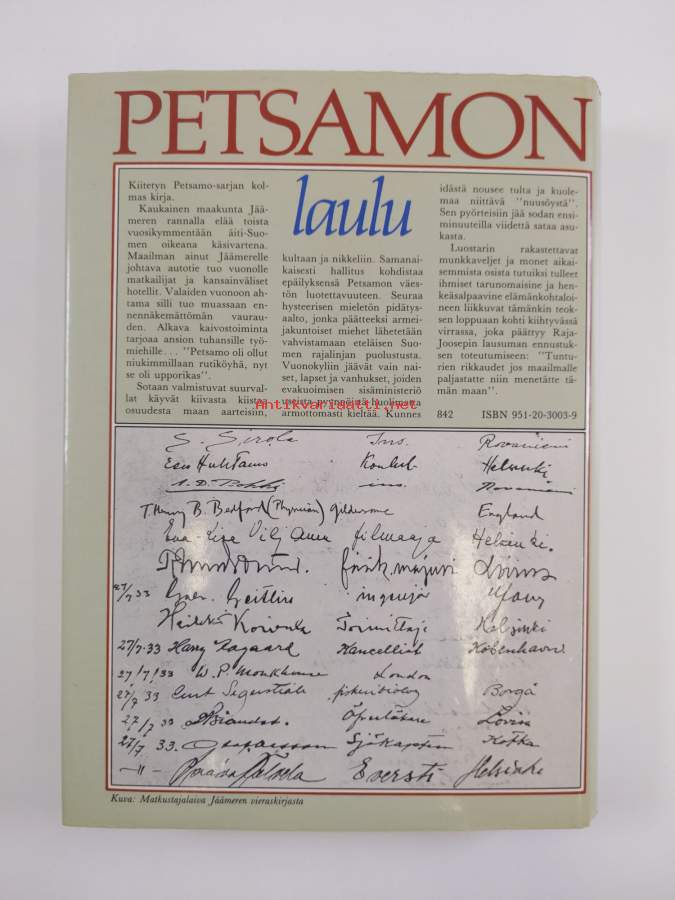 PETSAMON
laulu
Kiitetyn Petsamo-sarjan kol-
mas kirja.
Kaukainen maakunta Jää-
meren rannalla elää toista
vuosikymmentään äiti-Suo-
men oikeana käsivartena.
Maailman ainut Jäämerelle
johtava autotie tuo vuonolle
matkailijat ja kansainväliset
hotellit. Valaiden vuonoon ah-
tama silli tuo muassaan en-
nennäkemättömän vaurau-
den. Alkava kaivostoiminta
tarjoaa ansion tuhansille työ-
miehille... "Petsamo oli ollut
niukimmillaan rutiköyhä, nyt
se oli upporikas".
Sotaan valmistuvat suurval-
lat käyvät kiivasta kiistaa
osuudesta maan aarteisiin,
kultaan ja nikkeliin. Samanai-
kaisesti hallitus kohdistaa
epäilyksensä Petsamon väes-
tön luotettavuuteen. Seuraa
hysteerisen mieletön pidätys-
aalto, jonka päätteeksi armei-
jakuntoiset miehet lähetetään
vahvistamaan eteläisen Suo-
men rajalinjan puolustusta.
Vuonokyliin jäävät vain nai-
set, lapset ja vanhukset, joiden
evakuoimisen sisäministeriö
useista pyynnöistä huolimatta
armottomasti kieltää. Kunnes
idästä nousee tulta ja kuole-
maa niittävä "nuusöystä".
Sen pyörteisiin jää sodan ensi-
minuuteilla viidettä sataa asu-
kasta.
Luostarin rakastettavat
munkkaveljet ja monet aikai-
semmista osista tutuiksi tulleet
ihmiset tarunomaisine ja hen-
keäsalpaavine elämänkohtaloi-
neen liikkuvat tämänkin teok-
sen loppuaan kohti kiihtyvässä
virrassa, joka päättyy Raja-
Joosepin lausuman ennustuk-
sen toteutumiseen: "Muntu-
rien rikkaudet jos maailmalle
paljastatte niin menetätte tä-
män maan".
842 ISBN 951-20-3003-9
Antikvariaatti.net
S. Sirola Ins. Rovaniemi
Helsinki
ins. Rovaniemi
T Henry B. Bedford (Physician) England
filmaaja Helsinki.
27/7 33 Geitlin
Heikki Toimittaja Helsinki
27/7-33 Harry Aagaard København
27/7/33 W. P. Monkhouse London
27/7 33 Borgå
27/7 33 Lovisa
27/7 33. Sjökapten Kotka
-"- Eversti Helsinki
Kuva: Matkustajalaiva Jäämeren vieraskirjasta